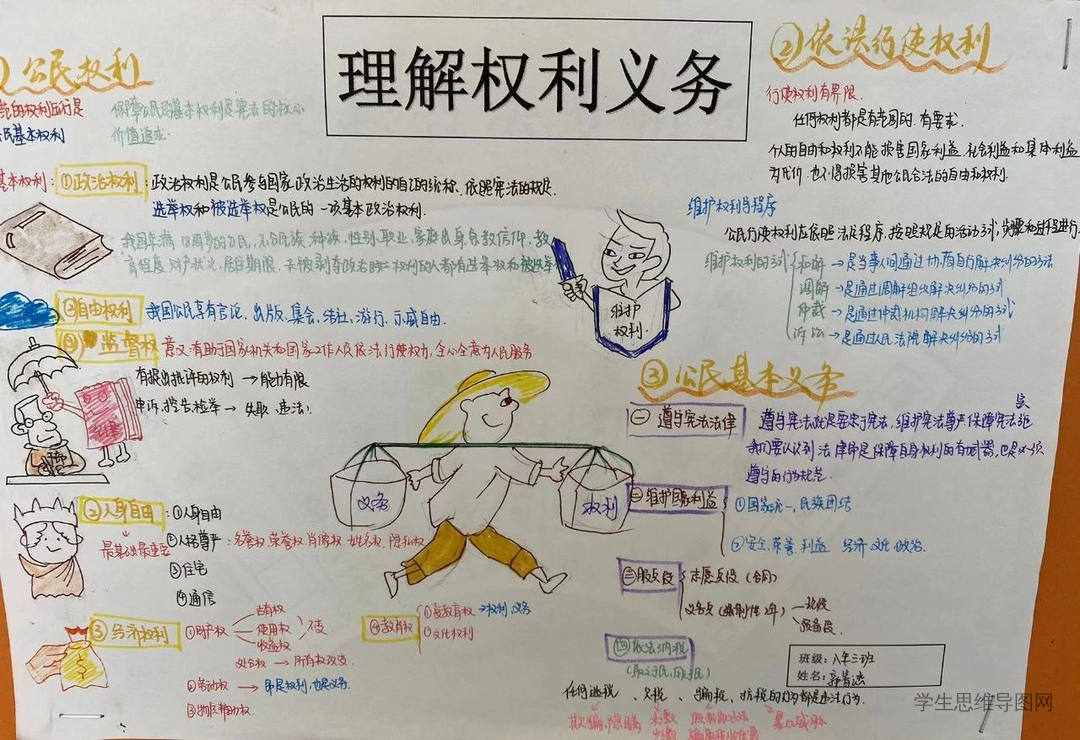 理解权利义务
公民权利
的权利运行是
公民基本权利
保障公民的基本权利是宪法的核心
价值追求.
基本权利:
①政治权利:政治权利是公民参与国家政治生活的权利的自己的统称、依照宪法的规定.
选举权和被选举权是公民的一项基本政治权利.
我国年满18周岁的公民,不分民族、种族、性别、职业、家庭出身、宗教信仰、教
育程度、财产状况、居住期限、未被剥夺政治的权利的人都有选举权和被选举
②自由权利 我国公民享有言论、出版、集会、结社、游行、示威自由.
监督权 意义:有助于国家机关和国家工作人员依法行使权力,全心全意为人民服务
有提出批评的权利→能力有限
申诉、控告、检举→失职、违法!
②人身自由:①人身自由
最基本最重要
②人格尊严:名誉权、荣誉权、肖像权、姓名权、隐私权
③住宅
④通信
③经济权利 ①财产权
占有权
使用权
收益权
处分权→所有权改变.
②劳动权→即是权利,也是义务.
③物质帮助权
④教育权
①受教育权→权利、义务
②文化权利
义务
权利
维护
权利
②依法行使权利
行使权利有界限.
任何权利都是有范围的,有要求.
个人的自由和权利不能损害国家利益、社会利益和集体利益
为代价,也不得损害其他公民合法的自由和权利.
维护权利守程序
公民行使权利应依照法定程序,按照规定的活动方式,步骤和过程进行.
维护权利的方式
和解→是当事人间通过协商自行解决纠纷的方法
调解→是通过调解组织解决纠纷的方式
仲裁→是通过仲裁机构解决纠纷的方式
诉讼→是通过人民法院解决纠纷的方式
③公民基本义务
一 遵守宪法法律 遵守宪法就是要忠于宪法,维护宪法尊严保障宪法实
我们要认识到法律即是保障自身权利的有力武器,也是必须
遵守的行为规范.
二 维护国家利益
①国家统一、民族团结
②安全、荣誉、利益 经济、文化、政治.
三 服兵役
志愿兵役(合同)
义务兵(编制件2年)
现役
预备役.
四 依法纳税
(取之于民,用之于民)
任何逃税、欠税、骗税、抗税的行为都是违法行为.
欺骗、隐瞒
班级:八年三班
姓名:
学生思维导图网